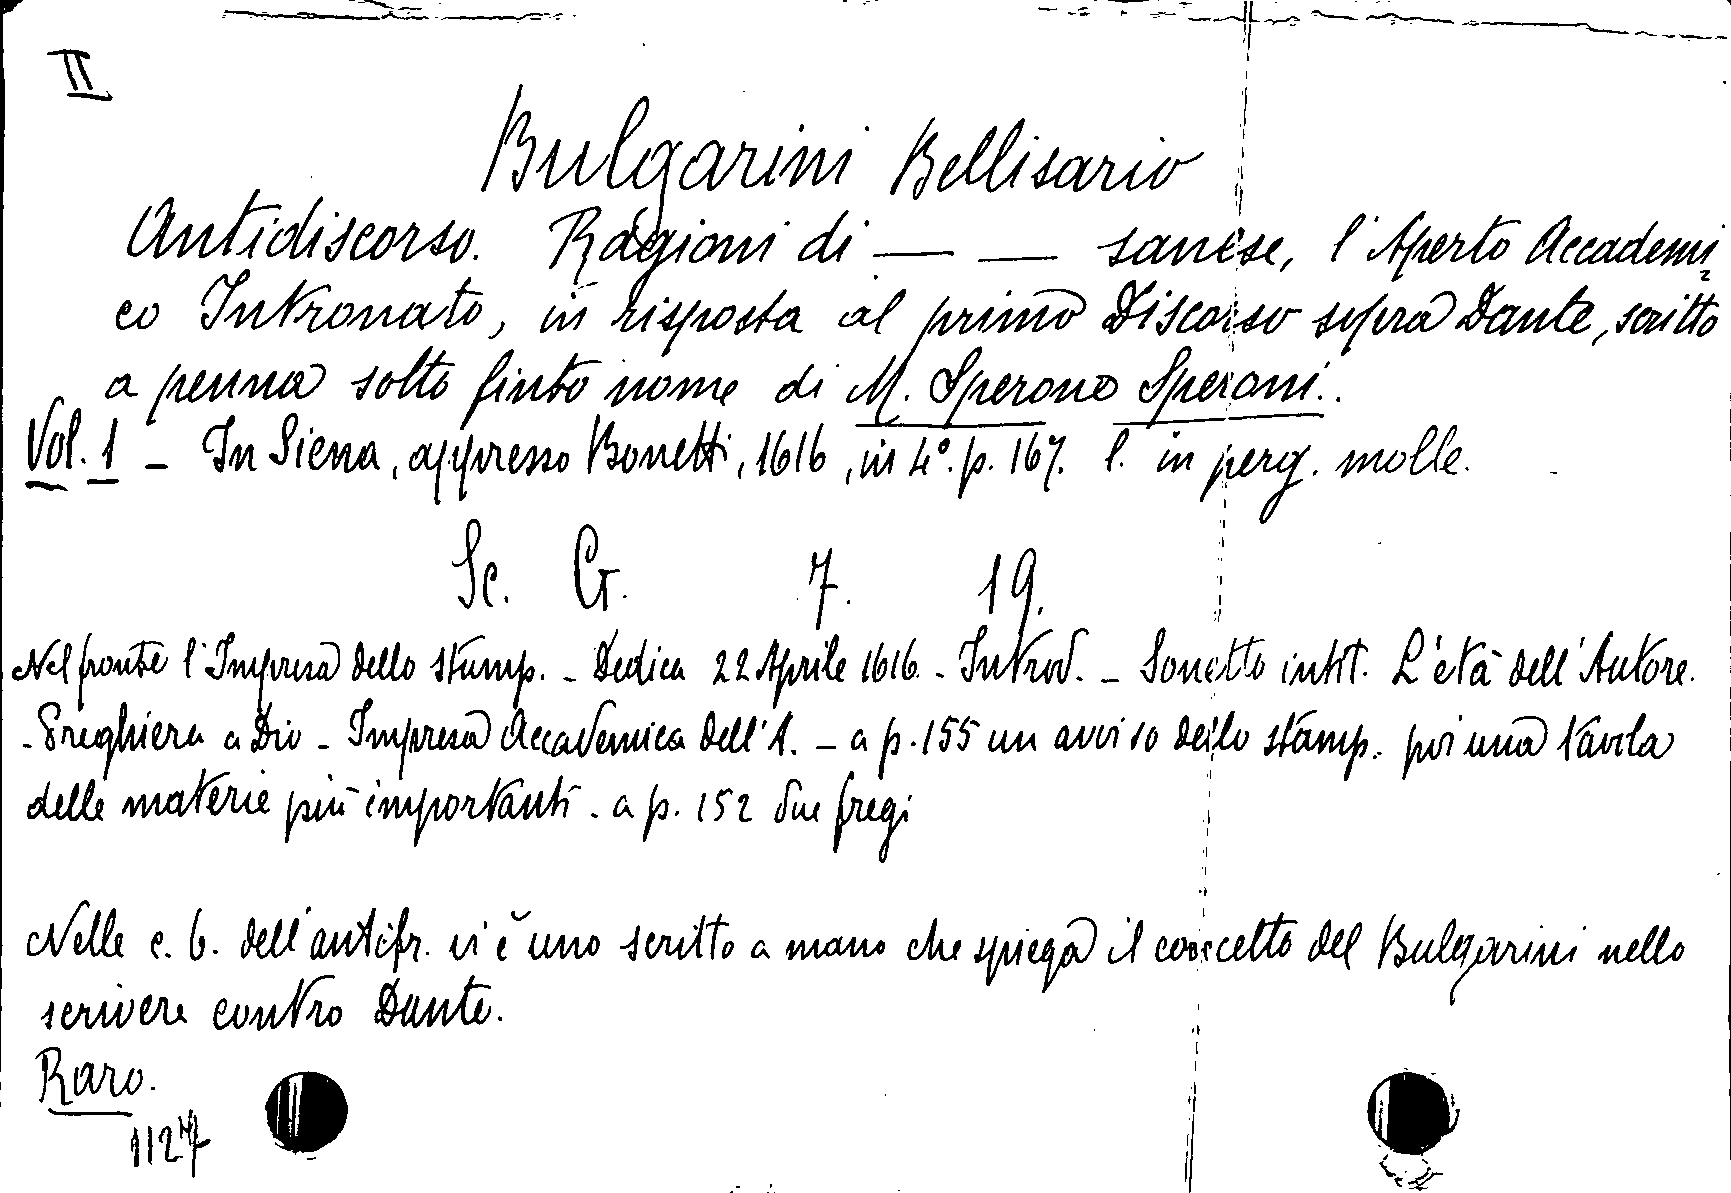 II
Bulgarini Bellisario
Antidiscorso. Ragioni di — — sanese, l'Aperto Accademi
co Intronato, in risposta al primo Discorso sopra Dante, scritto
a penna sotto finto nome di M. Sperone Speroni..
Vol. 1 - In Siena, appresso Bonetti, 1616, in 4°. p. 167. l. in perg. molle.
Sc. G. 7. 19.
Nel fronte l'Impresa dello stamp. - Dedica 22 Aprile 1616. - Introd. - Sonetto intit. L'età dell'Autore.
- Preghiera a Dio - Impresa Accademica dell'A. - a p. 155 un avviso dello stamp. poi una tavola
delle materie più importanti. a p. 152 due fregi
Nelle c. b. dell'antifr. vi è uno scritto a mano che spiega il concetto del Bulgarini nello
scrivere contro Dante.
Raro.
1127